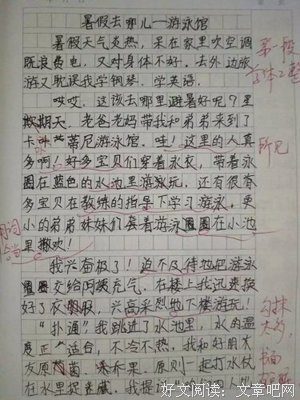 暑假去哪儿—游泳馆
暑假天气炎热，呆在家里吹空调
既浪费电，又对身体不好。去外边旅
游又耽误我学钢琴、学英语。
哎哎，这该去哪里避暑好呢？星
期天，老爸老妈带我和弟弟来到了
卡 蒂尼游泳馆。哇！这里的人真
多啊！好多宝贝们穿着泳衣，带着泳
圈在蓝色的水池里游泳玩，还有很多
多宝贝在教练的指导下学习游泳，更
小的弟弟妹妹们套着游泳圈在小池
里撒欢！
我兴奋极了！迫不及待地把游泳
圈交给 充气，在楼上我迅速换
好了衣服，兴高采烈地下楼游玩！
“扑通”我跳进了水池里，水的温
度正适合，不冷不热。我和好朋友
友原 原则一起打水仗
在水里捉迷藏。我
第一段
所见
词
恰当
勾抹
太多
书面
好文阅读：文章吧网